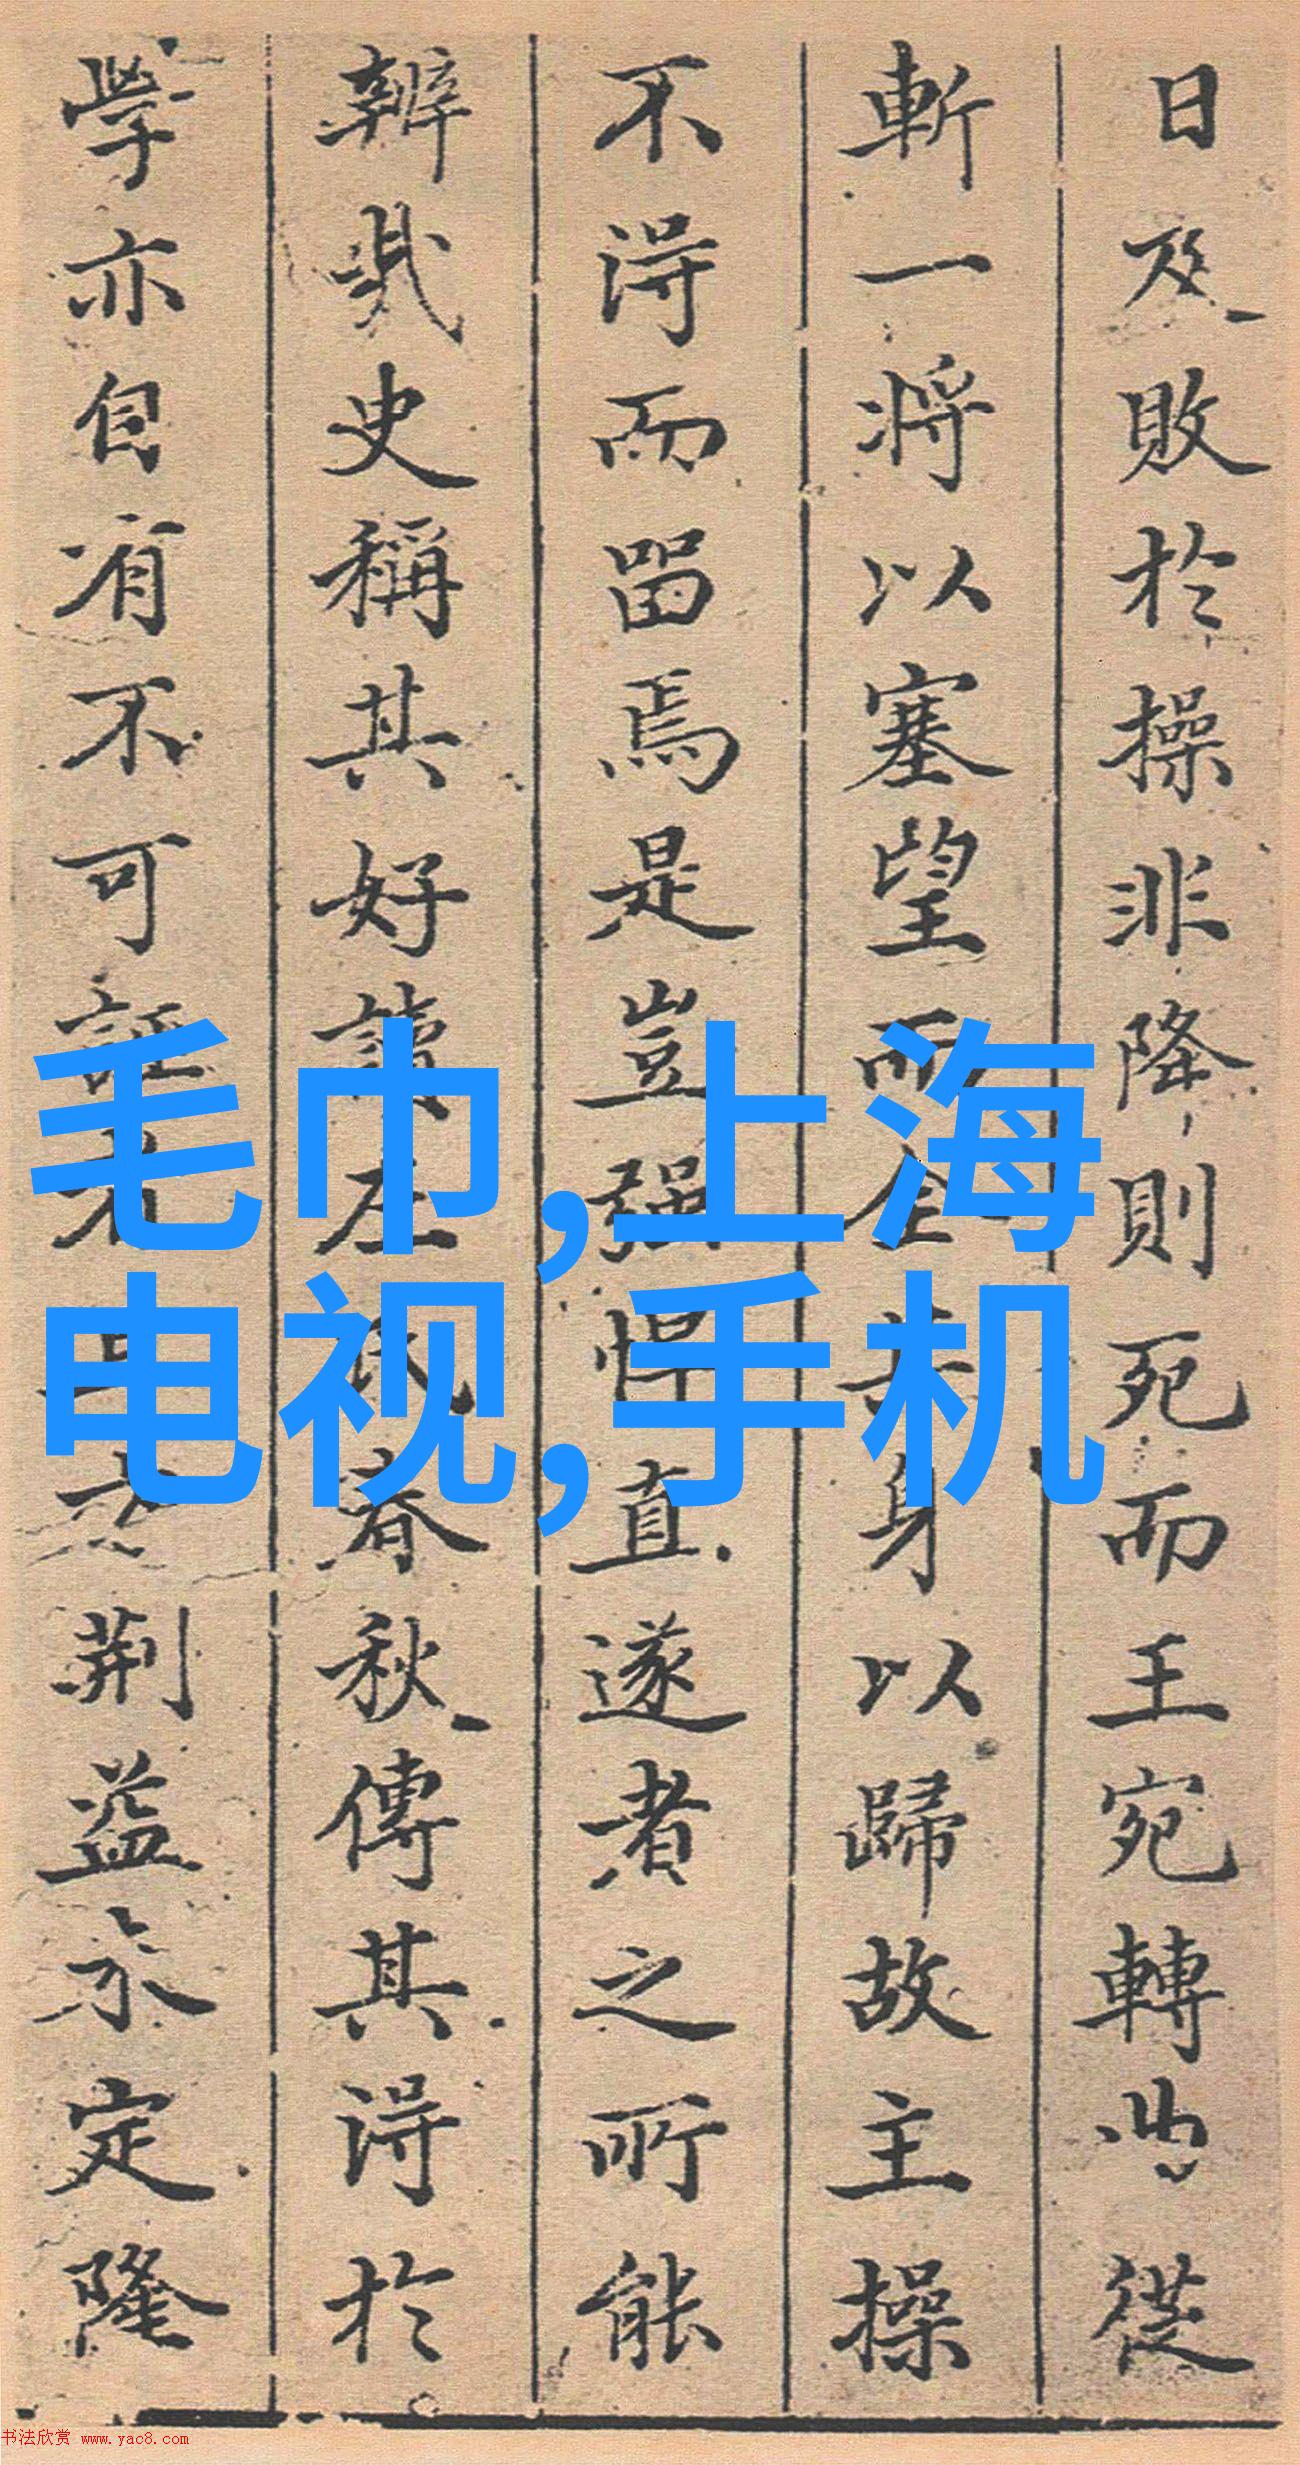 日及敗於操非降則死而王宛轉曲從
斬一将以塞望而全其身以歸故主操
不得而留焉是豈强悍直遂者之所能
辨哉史稱其好讀左氏春秋傳其得於
學亦自有不可誣者
荆益
定隆
毛巾,上海
电视,手机
书法欣赏 www.yac8.com